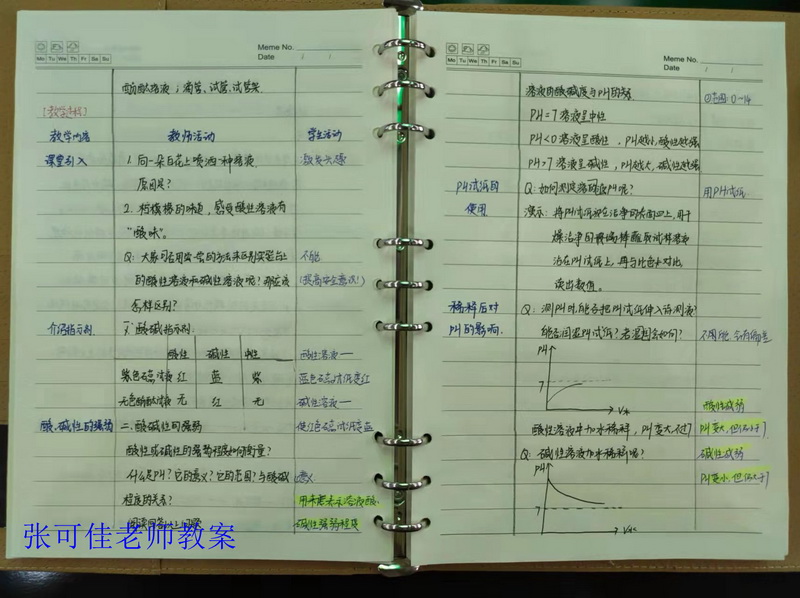 Meme No.
Date
Mo Tu We Th Fr Sa Su
酚酞溶液；滴管、试管、试管架
(教学过程)
教学内容 教师活动 学生活动
课堂引入 1. 向一朵白花上喷洒一种溶液
原因是？
2. 柠檬的味道，感受酸性溶液有
"酸味"。
Q：大家可否用尝一尝的方法来区别实验台上 不能
的酸性溶液和碱性溶液呢？那应该 (提高安全意识!)
怎样区别？
介绍指示剂 一、酸碱指示剂
酸性 碱性 中性 酸性溶液—
紫色石蕊试液 红 蓝 紫 蓝色石蕊试纸变红
无色酚酞试液 无 红 无 碱性溶液—
酸、碱性的强弱 二、酸碱性的强弱 使红色石蕊试纸变蓝
酸性或碱性的强弱程度如何衡量？
什么是pH？它的意义？它的范围？与酸碱 意义
程度的关系？ 用来表示溶液酸
阅读回答以上问题 碱性强弱程度
张可佳老师教案
Meme No.
Date
Mo Tu We Th Fr Sa Su
溶液的酸碱度与pH的关系 范围：0~14
PH=7 溶液呈中性
PH<0 溶液呈酸性，PH越小，酸性越强
PH>7 溶液呈碱性，PH越大，碱性越强
PH试纸的 Q：如何测定溶液的PH呢？ 用PH试纸
使用 演示：将PH试纸放在洁净的表面皿上，用干
燥洁净的玻璃棒蘸取试样溶液
沾在PH试纸上，再与比色卡对比
读出数值。
稀释后对 Q：测PH时，能否把PH试纸伸入待测液？
PH的影响 能否润湿PH试纸？若湿润会如何？
PH
7
V水
酸性减弱
酸性溶液中加水稀释，PH变大，但<7 PH变大，但仍小于7
Q：碱性溶液加水稀释呢？ 碱性减弱
PH PH变小，但仍大于7
7
V水